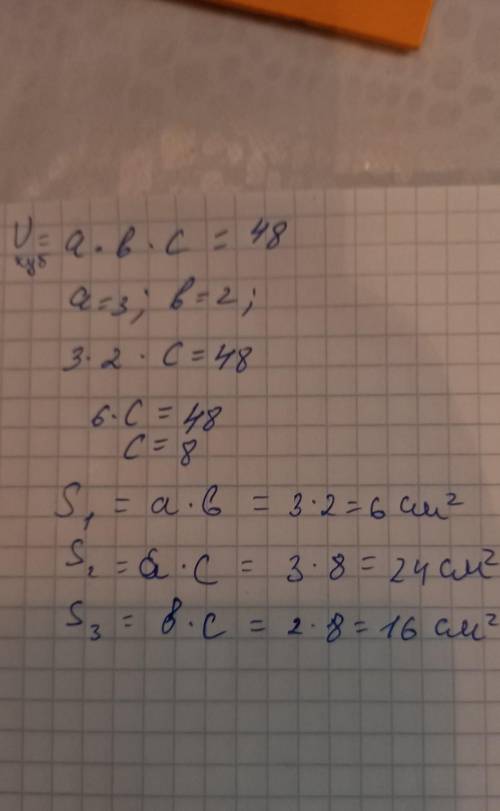 V куб = a · b · c = 48
a = 3; b = 2;
3 · 2 · c = 48
6 · c = 48
c = 8
S₁ = a · b = 3 · 2 = 6 см²
S₂ = a · c = 3 · 8 = 24 см²
S₃ = b · c = 2 · 8 = 16 см²